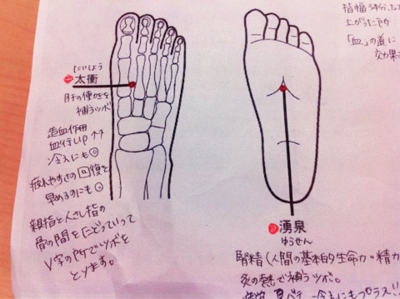 たいしょう
太衝
肝の働きを
補うツボ
造血作用
血行UP↑↑
冷えにも◎
疲れやすさの回復を
早めるのにも
親指と人さし指の
骨の間をたどっていって
V字の所でツボを
とります。
指幅
上がった所
「血」の道に
効果
湧泉
ゆうせん
腎精(人間の基本的生命力=精力
灸の熱で補うツボ。
冷えにもプラス!!